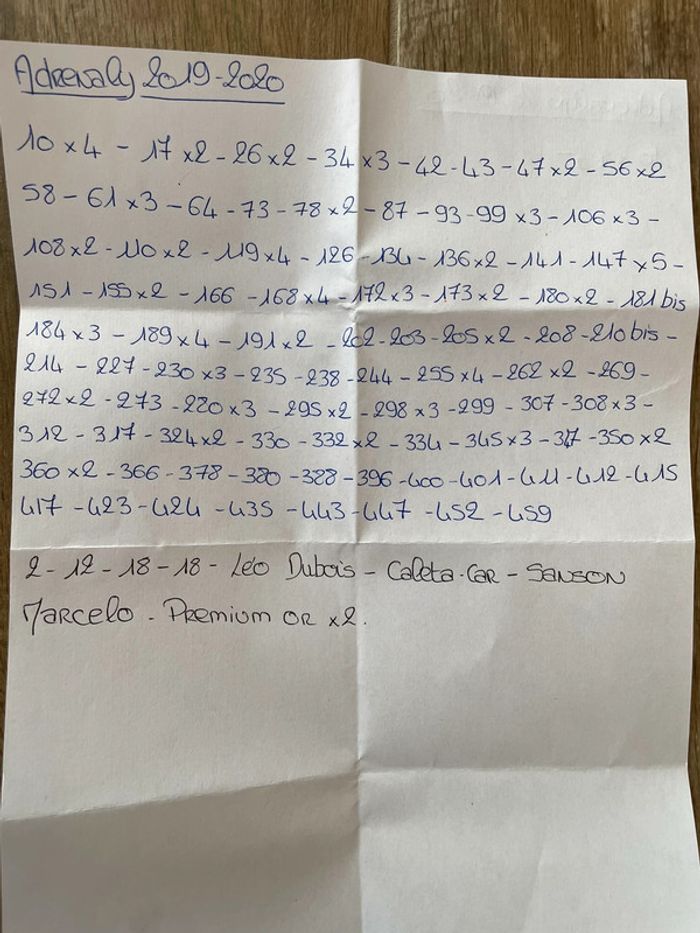 Adrenalyn 2019-2020
10 x 4 - 17 x 2 - 26 x 2 - 34 x 3 - 42 - 43 - 47 x 2 - 56 x 2
58 - 61 x 3 - 64 - 73 - 78 x 2 - 87 - 93 - 99 x 3 - 106 x 3 -
108 x 2 - 110 x 2 - 119 x 4 - 126 - 134 - 136 x 2 - 141 - 147 x 5 -
151 - 155 x 2 - 166 - 168 x 4 - 172 x 3 - 173 x 2 - 180 x 2 - 181 bis
184 x 3 - 189 x 4 - 191 x 2 - 202 - 203 - 205 x 2 - 208 - 210 bis -
214 - 227 - 230 x 3 - 235 - 238 - 244 - 255 x 4 - 262 x 2 - 269 -
272 x 2 - 273 - 280 x 3 - 295 x 2 - 298 x 3 - 299 - 307 - 308 x 3 -
312 - 317 - 324 x 2 - 330 - 332 x 2 - 334 - 345 x 3 - 347 - 350 x 2
360 x 2 - 366 - 378 - 380 - 388 - 396 - 400 - 401 - 411 - 412 - 415
417 - 423 - 424 - 435 - 443 - 447 - 452 - 459
2 - 12 - 18 - 18 - Léo Dubois - Caleta-Car - SANSON
Marcelo - Premium OR x2.